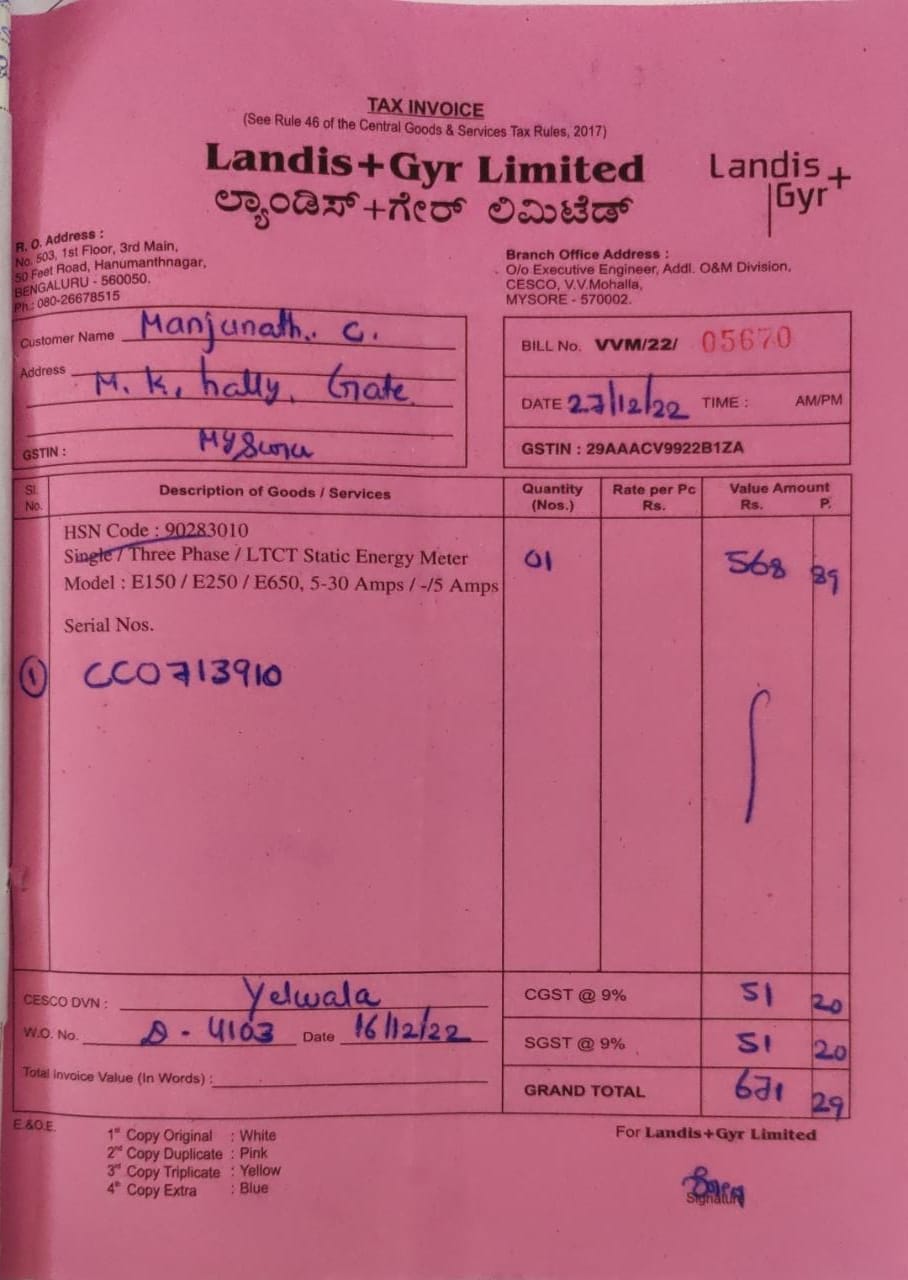 TAX INVOICE
(See Rule 46 of the Central Goods & Services Tax Rules, 2017)
Landis+Gyr Limited
ಲ್ಯಾಂಡಿಸ್+ಗೇರ್ ಲಿಮಿಟೆಡ್
Landis+
Gyr
R. O. Address :
No. 503, 1st Floor, 3rd Main,
50 Feet Road, Hanumanthnagar,
BENGALURU - 560050.
Ph.: 080-26678515
Branch Office Address :
O/o Executive Engineer, Addl. O&M Division,
CESCO, V.V.Mohalla,
MYSORE - 570002.
Customer Name Manjunath. C.
Address M. K. hally, Gate
Mysuru
GSTIN :
BILL No. VVM/22/ 05670
DATE 27/12/22 TIME : AM/PM
GSTIN : 29AAACV9922B1ZA
Sl. No. Description of Goods / Services Quantity (Nos.) Rate per Pc Rs. Value Amount Rs. P.
HSN Code : 90283010
Single / Three Phase / LTCT Static Energy Meter 01 568 89
Model : E150 / E250 / E650, 5-30 Amps / -/5 Amps
Serial Nos.
1 CC0713910
CESCO DVN : Yelwala
W.O. No. D - 4103 Date 16/12/22
Total Invoice Value (In Words) :
CGST @ 9% 51 20
SGST @ 9% 51 20
GRAND TOTAL 671 29
E.&O.E.
1st Copy Original : White
2nd Copy Duplicate : Pink
3rd Copy Triplicate : Yellow
4th Copy Extra : Blue
For Landis+Gyr Limited
Signature